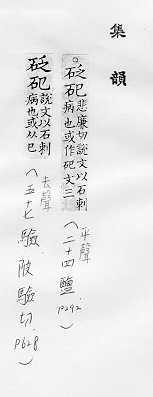 集韻
。砭
悲廉切說文以石刺
病也或作 文三
(二十四鹽 平聲 P292.)
砭
說文以石刺
病也或从巳
(五十七驗 去聲 陂驗切. P628